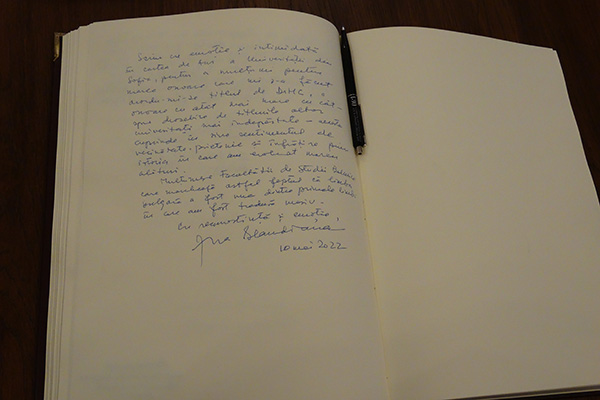 Scriu cu emoție și intimidată
în cartea de aur a Universității din
Sofia, pentru a mulțumi pentru
marea onoare care mi s-a făcut
acordu-mi-se titlul de DHC, o
onoare cu atât mai mare cu cât –
spre deosebire de titlurile altor
universități mai îndepărtate – acesta
cuprinde în sine sentimentul de
vecinătate, prietenie și înfrățire prin
istoria în care am evoluat mereu
alături.
Mulțumesc Facultății de Studii
care marchează astfel faptul că limba
bulgară a fost una dintre primele limbi
în care am fost tradusă masiv.
Cu recunoștință și emoție,
Ana Blandiana
10 mai 2022